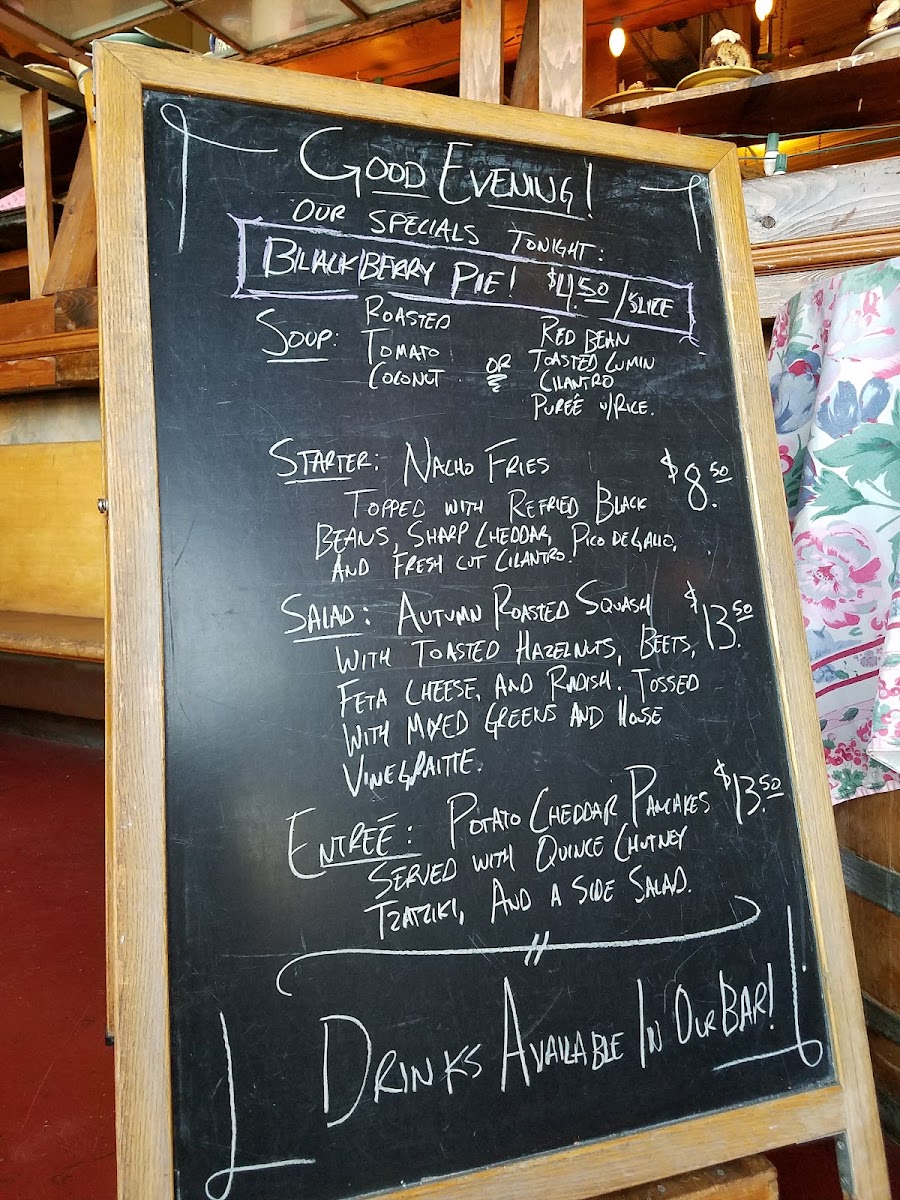 GOOD EVENING!
OUR SPECIALS TONIGHT:
BLACKBERRY PIE! $4.50/SLICE
SOUP: ROASTED
TOMATO
COCONUT
OR
RED BEAN
TOASTED CUMIN
CILANTRO
PUREÉ W/RICE.
STARTER: NACHO FRIES $8.50
TOPPED WITH REFRIED BLACK
BEANS, SHARP CHEDDAR, PICO DE GALLO,
AND FRESH CUT CILANTRO.
SALAD: AUTUMN ROASTED SQUASH $13.50
WITH TOASTED HAZELNUTS, BEETS,
FETA CHEESE, AND RADISH. TOSSED
WITH MIXED GREENS AND HOUSE
VINEGRAITTE.
ENTREÉ: POTATO CHEDDAR PANCAKES $13.50
SERVED WITH QUINCE CHUTNEY
TZATZIKI, AND A SIDE SALAD.
DRINKS AVAILABLE IN OUR BAR!